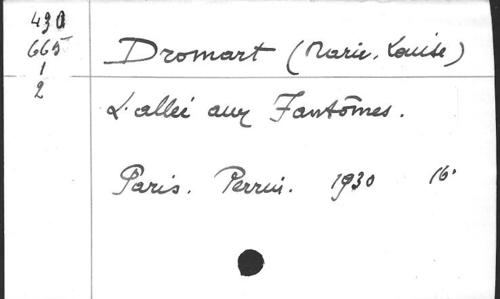 490
665
1
2
Dromart (Marie. Louise)
L'allée aux Fantômes.
Paris. Perrin. 1930 16°